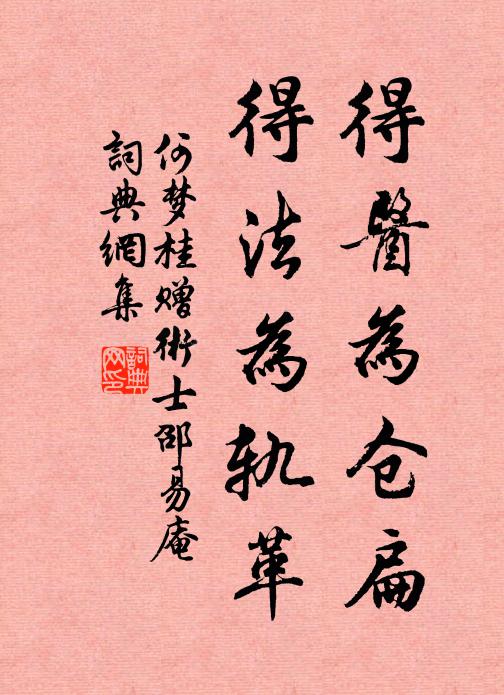 得醫為仓扁
得法為軌革
何梦桂赠術士邵易庵
詞典網集
詞典网印